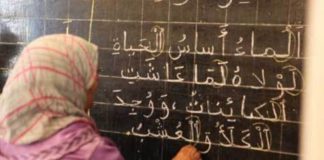 اَلْمَاءُ أَسَاسُ الْحَيَاةِ
لَوْلَاهُ لَمَا عَاشَتْ
الْكَائِنَاتُ، وَوُجِدَ
الْكَلَأُ وَالْعُشْبُ.